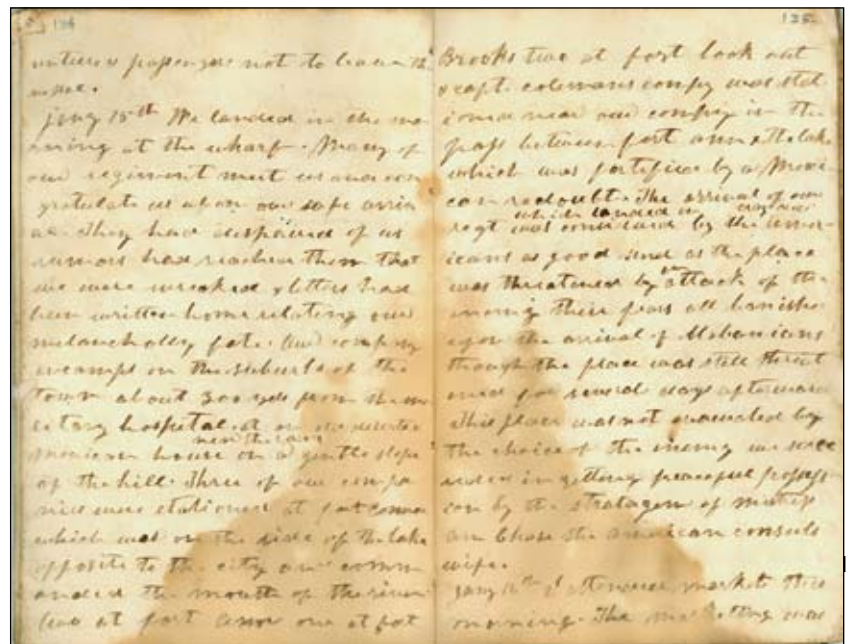 134
passengers not to leave the
vessel.
Jany 15th We landed in the mo-
rning at the wharf. Many of
our regiment meet us and con
gratulate us upon our safe arriv
al. They had despaired of us
rumors had reached them that
we were wrecked & letters had
been written home relating our
melancholly fate. Our company
encamps on the suburbs of the
town about 300 yds from the
hospital at
near the
mexican house on a gentle slope
of the hill. Three of our compa
nies were stationed at fort
which was on the side of the lake
opposite to the city and comm
anded the mouth of the river
two at fort one at fort
135
Brooks two at fort look out
& capt. colemans compy was stat
ioned near our compy in the
pass between fort ann & the lake
which was fortified by a Mexi
can redoubt. The arrival of our
which landed in
regt was considered by the amer-
icans as good and as the place
was threatened by an attack of the
enemy their fears all banished
upon the arrival of Alabamians
though the place was still threat
ened for several days afterward
This place was not evacuated by
the choice of the enemy we succe
eded in getting peaceful possess
ion by the stratagem of mistress
ann Chase the american consuls
wife.
Jany 16th I attended market this
morning. The marketing was